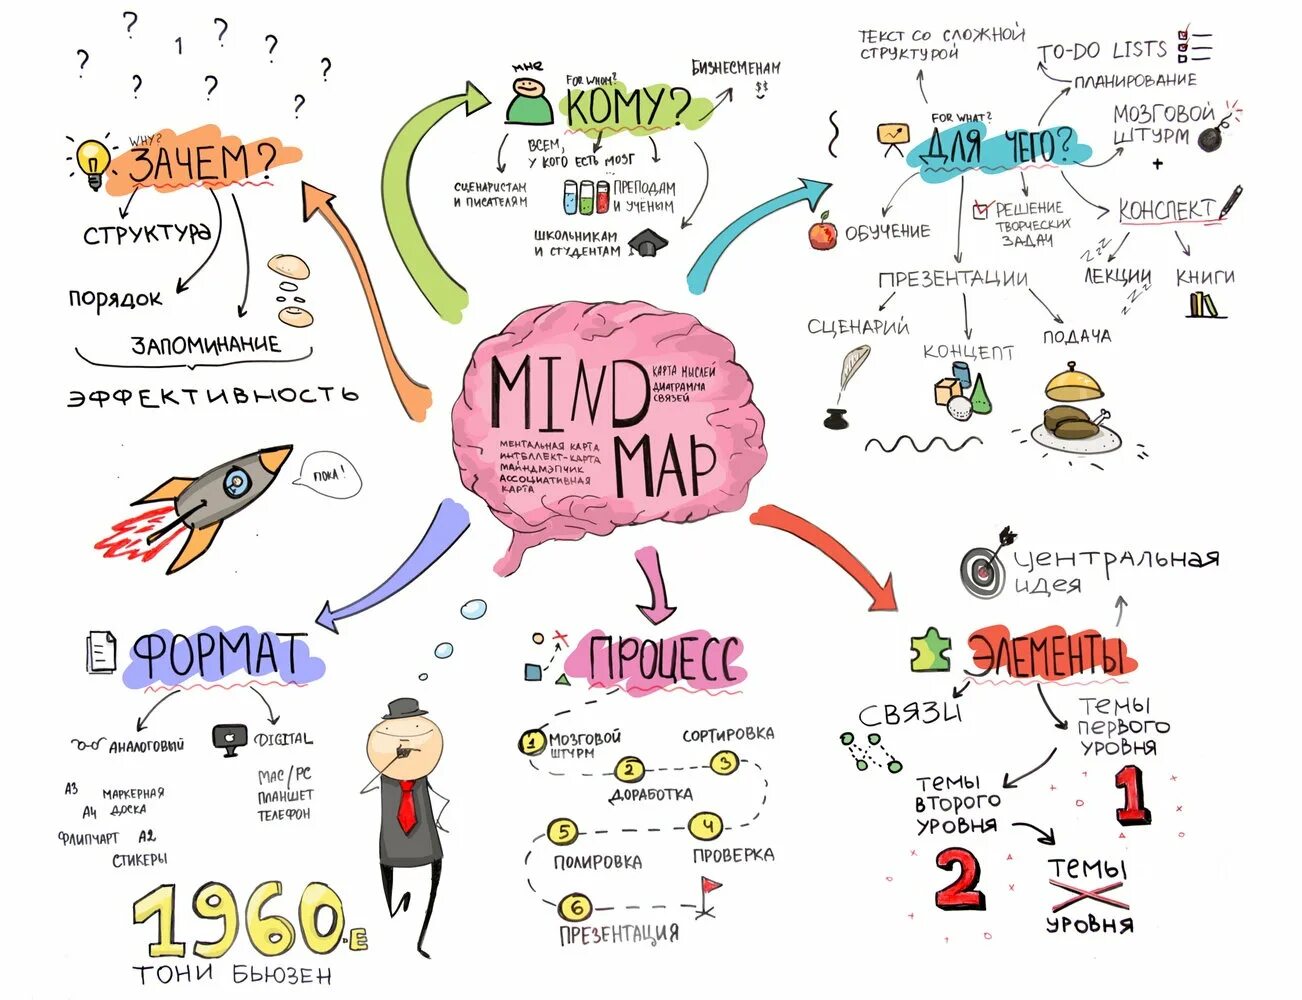 MIND
MAP
КАРТА МЫСЛЕЙ
ДИАГРАММА
СВЯЗЕЙ
МЕНТАЛЬНАЯ КАРТА
ИНТЕЛЛЕКТ-КАРТА
МАЙНДМЭПЧИК
АССОЦИАТИВНАЯ
КАРТА
? ? 1 ? ? ? ? ? ?
WHY?
ЗАЧЕМ?
СТРУКТУРА
ПОРЯДОК
ЗАПОМИНАНИЕ
ЭФФЕКТИВНОСТЬ
ПОКА!
МНЕ
FOR WHOM?
КОМУ?
БИЗНЕСМЕНАМ
$$
ВСЕМ,
У КОГО ЕСТЬ МОЗГ
...
СЦЕНАРИСТАМ
И ПИСАТЕЛЯМ
ПРЕПОДАМ
И УЧЕНЫМ
ШКОЛЬНИКАМ
И СТУДЕНТАМ
FOR WHAT?
ДЛЯ ЧЕГО?
ТЕКСТ СО СЛОЖНОЙ
СТРУКТУРОЙ
TO-DO LISTS
ПЛАНИРОВАНИЕ
МОЗГОВОЙ
ШТУРМ
+
КОНСПЕКТ
zzz
ЛЕКЦИИ
zzz
КНИГИ
РЕШЕНИЕ
ТВОРЧЕСКИХ
ЗАДАЧ
ОБУЧЕНИЕ
ПРЕЗЕНТАЦИИ
СЦЕНАРИЙ
КОНЦЕПТ
ПОДАЧА
ФОРМАТ
АНАЛОГОВЫЙ
А3
МАРКЕРНАЯ
ДОСКА
А4
ФЛИПЧАРТ
А2
СТИКЕРЫ
DIGITAL
MAC/PC
ПЛАНШЕТ
ТЕЛЕФОН
1960-Е
ТОНИ БЬЮЗЕН
ПРОЦЕСС
1
МОЗГОВОЙ
ШТУРМ
2
ДОРАБОТКА
СОРТИРОВКА
3
4
ПРОВЕРКА
5
ПОЛИРОВКА
6
ПРЕЗЕНТАЦИЯ
ЭЛЕМЕНТЫ
ЦЕНТРАЛЬНАЯ
ИДЕЯ
СВЯЗИ
ТЕМЫ
ПЕРВОГО
УРОВНЯ
1
ТЕМЫ
ВТОРОГО
УРОВНЯ
2
ТЕМЫ
X
УРОВНЯ